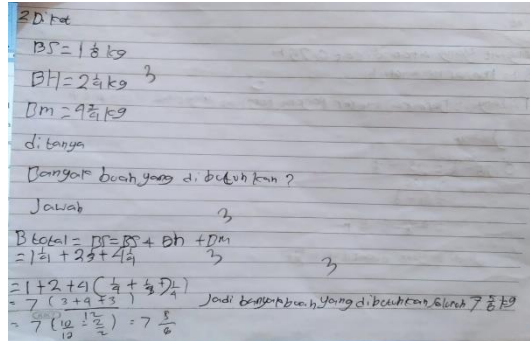 2 Diket
BS = 1 1/8 kg
BH = 2 1/4 kg 3
Bm = 4 2/4 kg
ditanya
Banyak buah yang dibutuhkan ?
Jawab
3
B total = BS = BS + Bh + Dm
= 1 1/4 + 2 1/3 + 4 1/4 3 3
= 1 + 2 + 4 ( 1/4 + 1/3 + 1/4 )
= 7 ( 3 + 4 + 3 ) / 12 Jadi banyak buah yang dibutuhkan 7 5/6 kg
= 7 ( 10/12 : 2/2 ) = 7 5/6